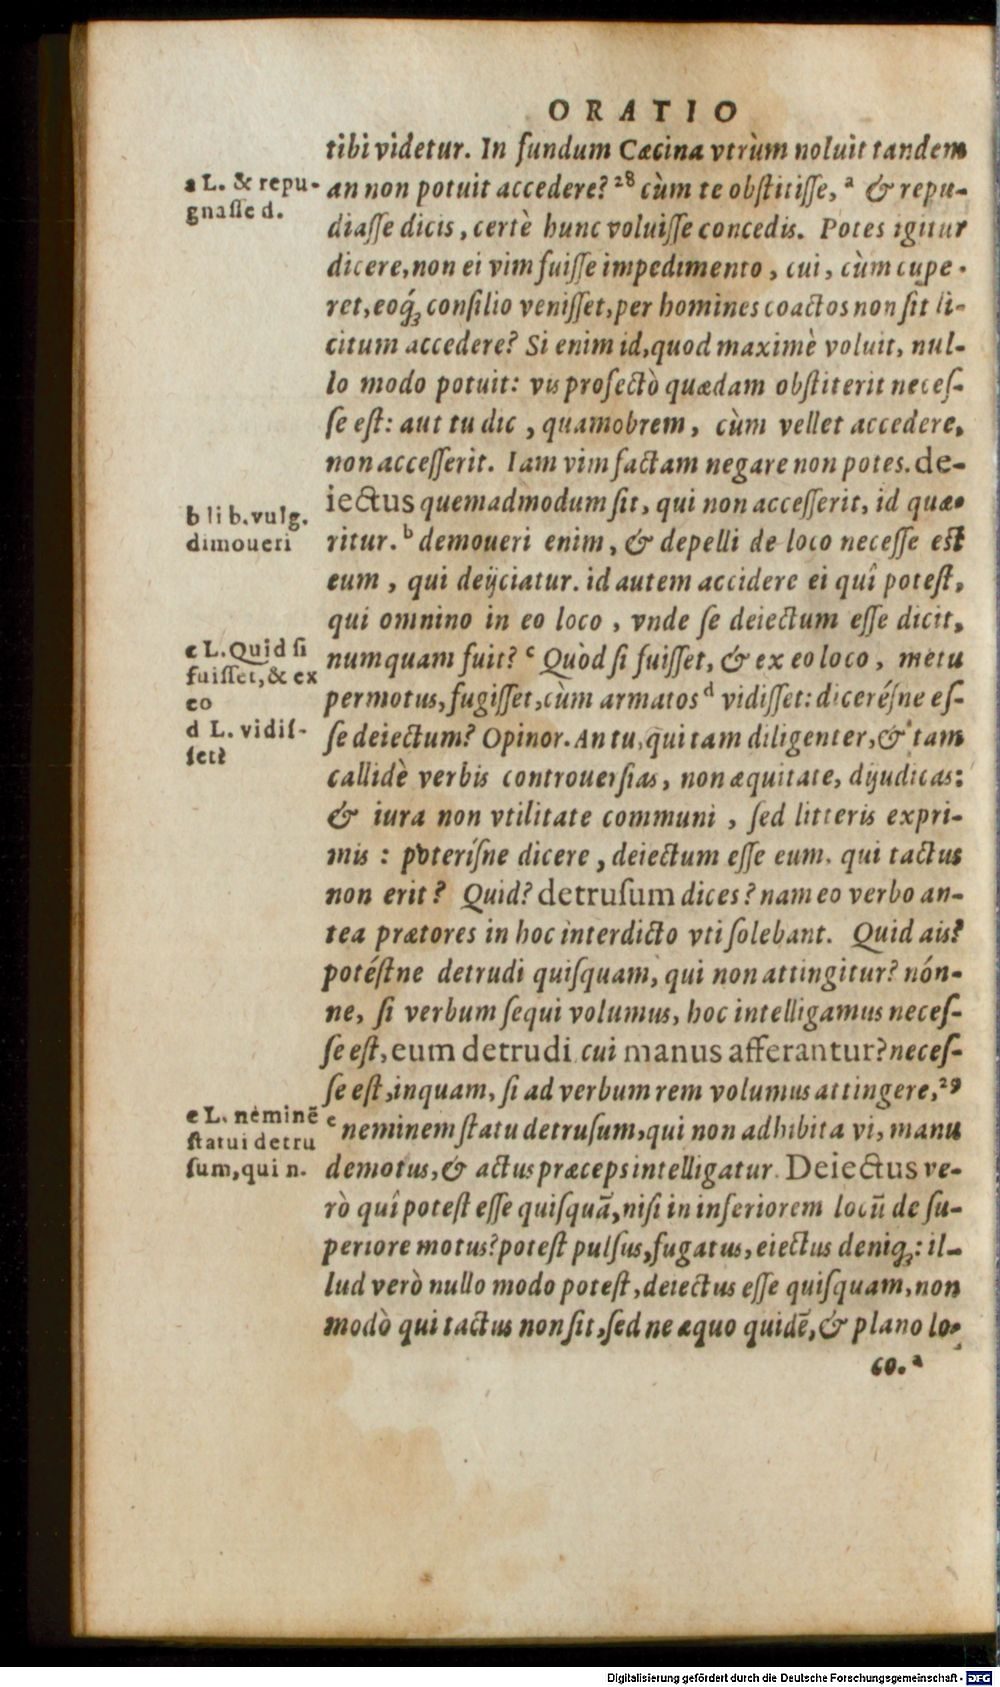 ORATIO
tibi videtur. In fundum Cæcina vtrùm noluit tandem
an non potuit accedere?²⁸ cùm te obſtitiſſe,ᵃ & repu-
diaſſe dicis, certè hunc voluiſſe concedis. Potes igitur
dicere, non ei vim fuiſſe impedimento, cui, cùm cupe-
ret, eoq́ꝫ conſilio veniſſet, per homines coactos non ſit li-
citum accedere? Si enim id, quod maximè voluit, nul-
lo modo potuit: vis profectò quædam obſtiterit neceſ-
ſe eſt: aut tu dic, quamobrem, cùm vellet accedere,
non acceſſerit. Iam vim factam negare non potes. de-
iectus quemadmodum ſit, qui non acceſſerit, id quæ-
ritur. ᵇ demoueri enim, & depelli de loco neceſſe eſt
eum, qui deijciatur. id autem accidere ei quî poteſt,
qui omnino in eo loco, vnde ſe deiectum eſſe dicit,
numquam fuit? ᶜ Quòd ſi fuiſſet, & ex eo loco, metu
permotus, fugiſſet, cùm armatos ᵈ vidiſſet: diceréſne eſ-
ſe deiectum? Opinor. An tu, qui tam diligenter, & tam
callidè verbis controuerſias, non æquitate, dijudicas:
& iura non vtilitate communi, ſed litteris expri-
mis: poteriſne dicere, deiectum eſſe eum, qui tactus
non erit? Quid? detruſum dices? nam eo verbo an-
tea prætores in hoc interdicto vti ſolebant. Quid ais?
potéſtne detrudi quiſquam, qui non attingitur? nón-
ne, ſi verbum ſequi volumus, hoc intelligamus neceſ-
ſe eſt, eum detrudi cui manus afferantur? neceſ-
ſe eſt, inquam, ſi ad verbum rem volumus attingere,²⁹
ᵉ neminem ſtatu detruſum, qui non adhibita vi, manu
demotus, & actus præceps intelligatur. Deiectus ve-
rò quî poteſt eſſe quiſquã, niſi in inferiorem locũ de ſu-
periore motus? poteſt pulſus, fugatus, eiectus deniqꝫ: il-
lud verò nullo modo poteſt, deiectus eſſe quiſquam, non
modò qui tactus non ſit, ſed ne æquo quidẽ, & plano lo-
co. ᵃ
a L. & repu-
gnaſſe d.
b lib. vulg.
dimoueri
c L. Quid ſi
fuiſſet, & ex
eo
d L. vidiſ-
ſetè
e L. neminẽ
ſtatui detru
ſum, qui n.
Digitalisierung gefördert durch die Deutsche Forschungsgemeinschaft - DFG